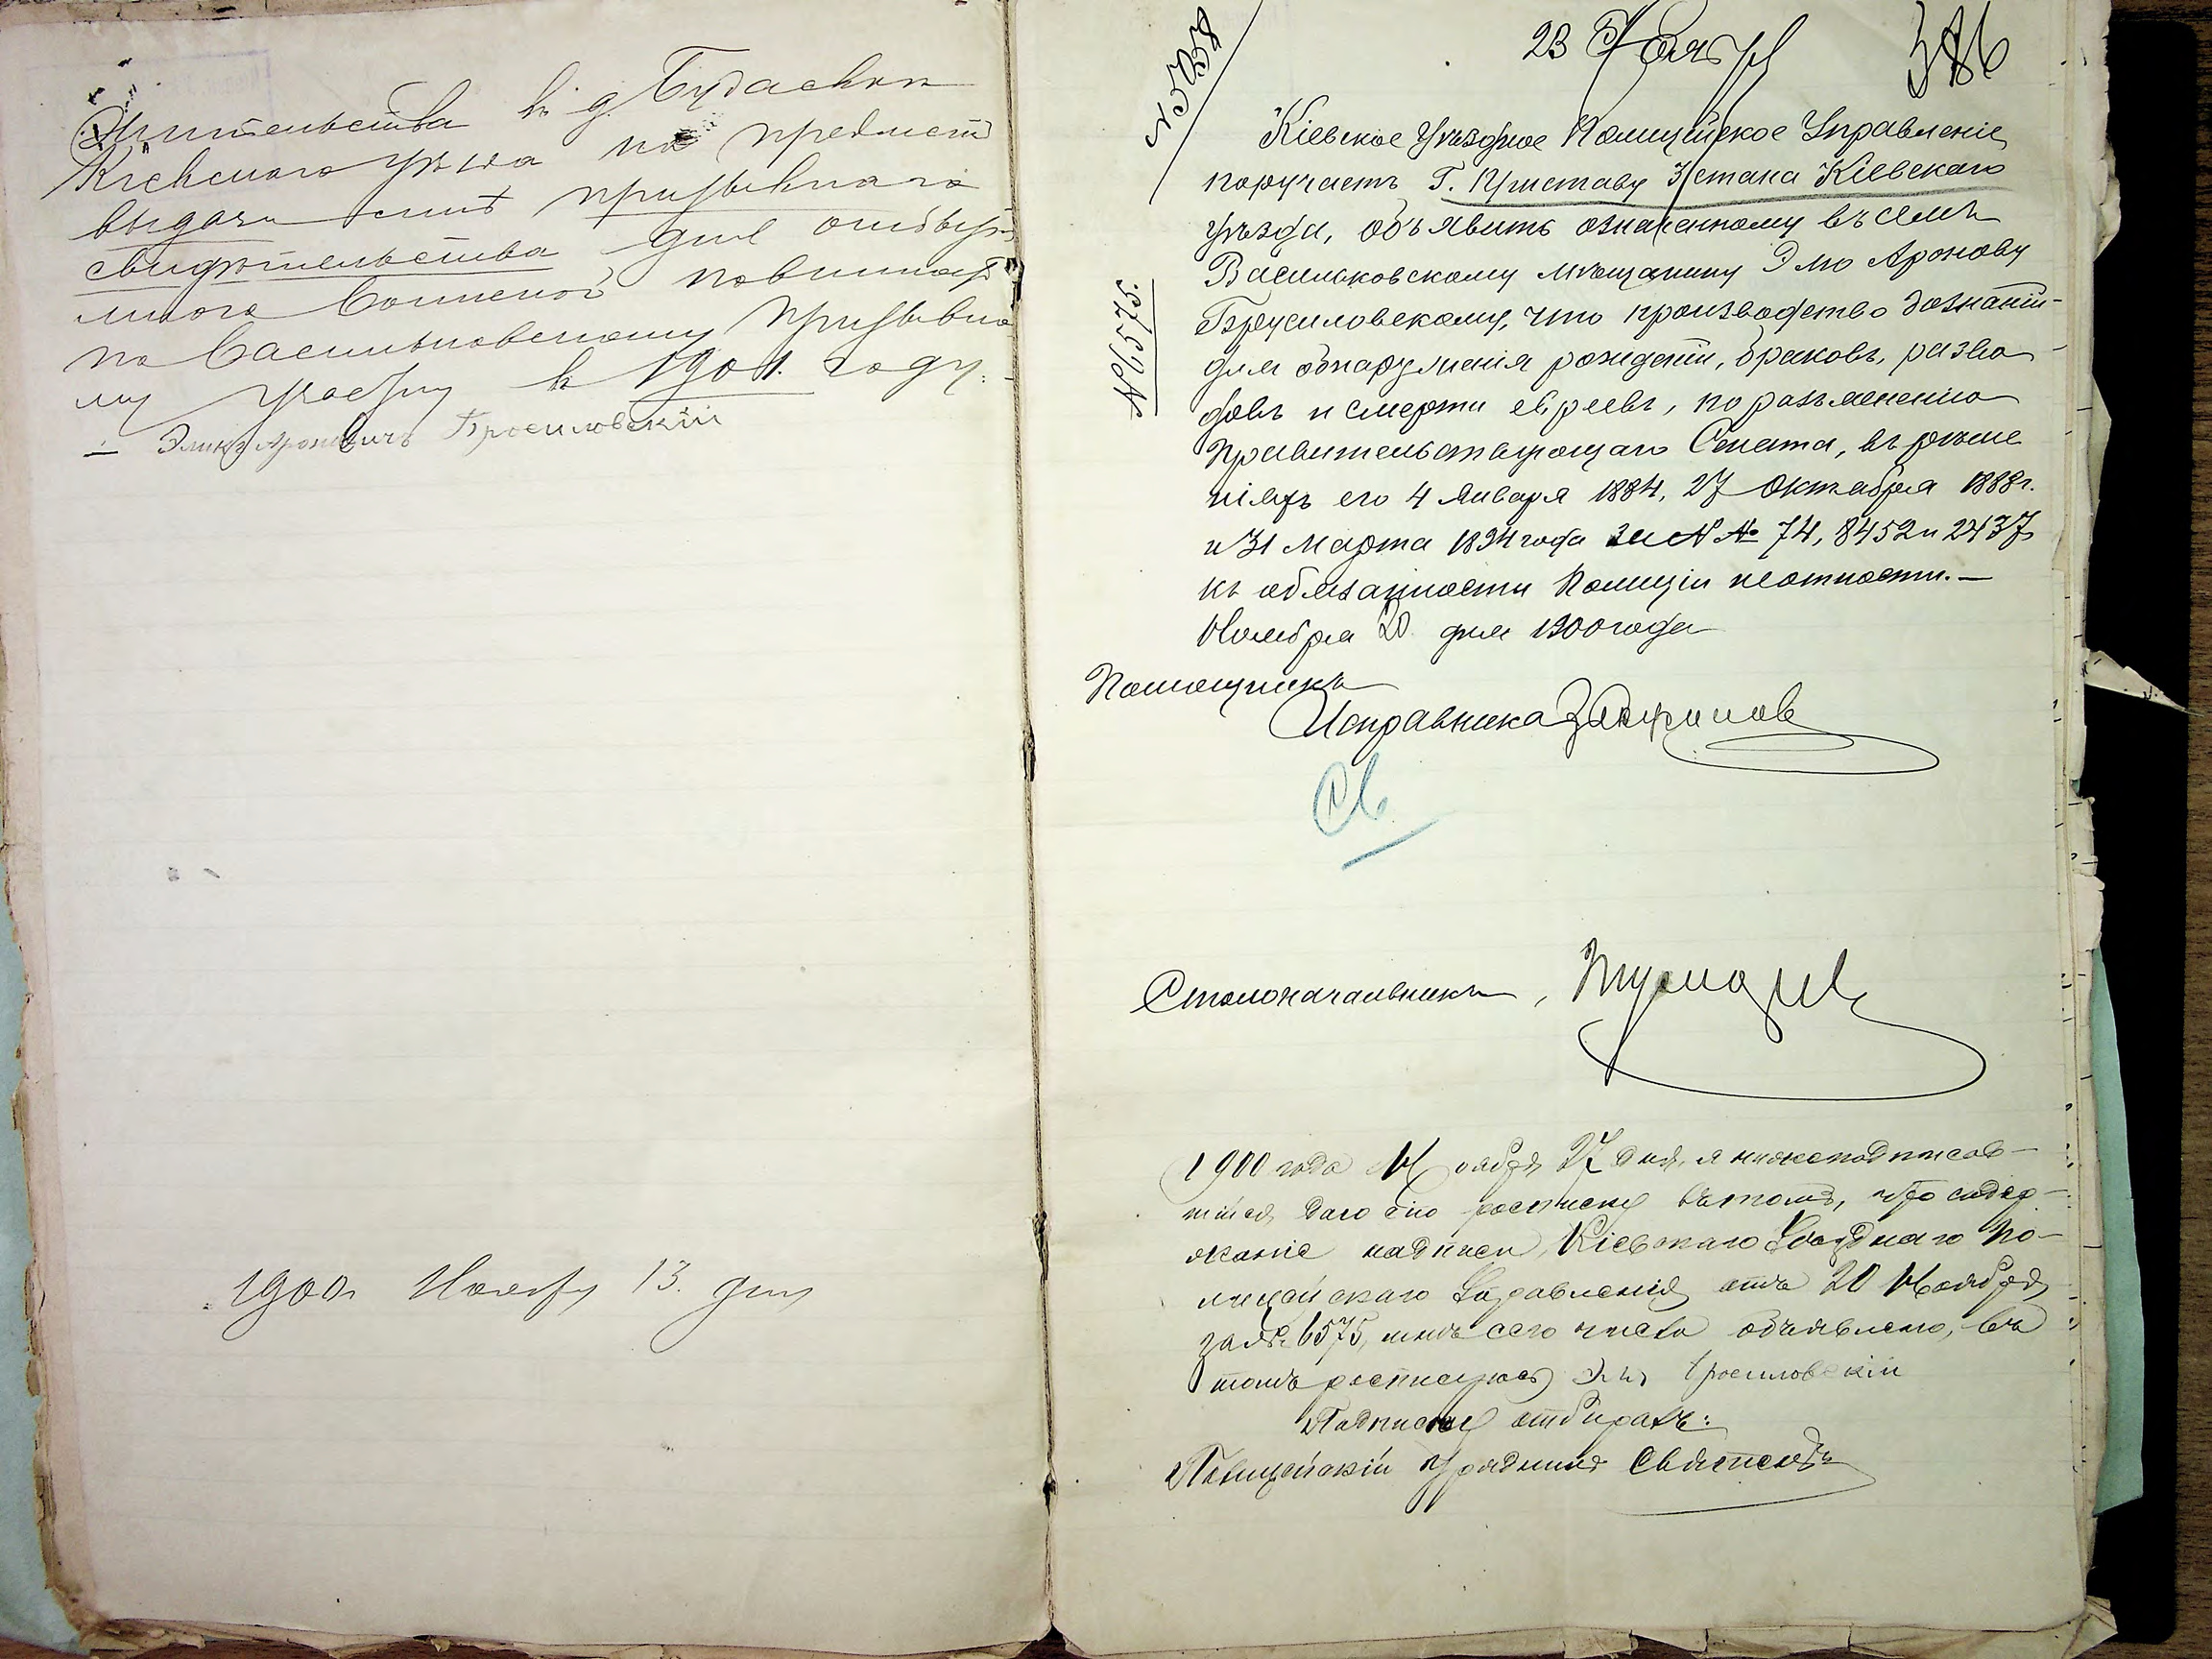 жительства въ д. Будаевки
Кіевскаго уѣзда на предметъ
выдачи мнѣ призывнаго
свидѣтельства для отбыв-
анія воинской повинности
по Васильковскому призывно
му участку въ 1901. году.
Эліокъ Ароновичъ Бросиловскій
1900 г. Ноября 13. дня
23 Ноября
386
№ 5058
Кіевское Уѣздное Полицейское Управленіе
поручаетъ Г. Приставу 3 стана Кіевскаго
уѣзда, объявить означенному въ семъ
Васильковскому мѣщанину Элю Аронову
№ 6575.
Брусиловскому, что производство дознаній
для обнаруженія рожденій, браковъ, разво
довъ и смерти евреевъ, по разъясненію
Правительствующаго Сената, въ рѣше
ніяхъ его 4 Января 1884, 27 Октября 1888 г.
и 31 Марта 1894 года за №№ 74, 8452 и 2437
къ обязанности Полиціи не относитъ.—
Ноября 20 дня 1900 года
Помощникъ
Исправника
Св
Столоначальникъ,
1900 года Ноября 27 дня, я нижеподписав-
шійся, даю сію росписку въ томъ, что содер-
жаніе надписи Кіевскаго Уѣзднаго По-
лицейскаго Управленія отъ 20 Ноября
за № 6575, мнѣ сего числа объявлено, въ
томъ росписуюсь Эль Бросиловскій
Подписку отбиралъ:
Полицейскій Урядникъ